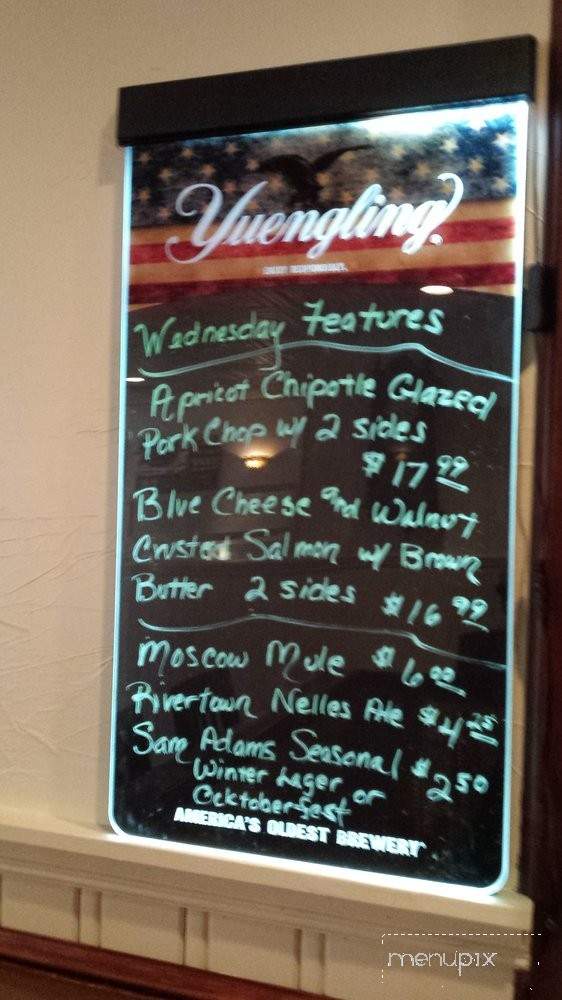 Yuengling
ENJOY RESPONSIBLY.
Wednesday Features
Apricot Chipotle Glazed
Pork Chop w/ 2 sides
$17 99
Blue Cheese and Walnut
Crusted Salmon w/ Brown
Butter 2 sides $16 99
Moscow Mule $6 00
Rivertown Nelles Ale $4 25
Sam Adams Seasonal $2 50
Winter Lager or
Ocktoberfest
AMERICA'S OLDEST BREWERY
menupix